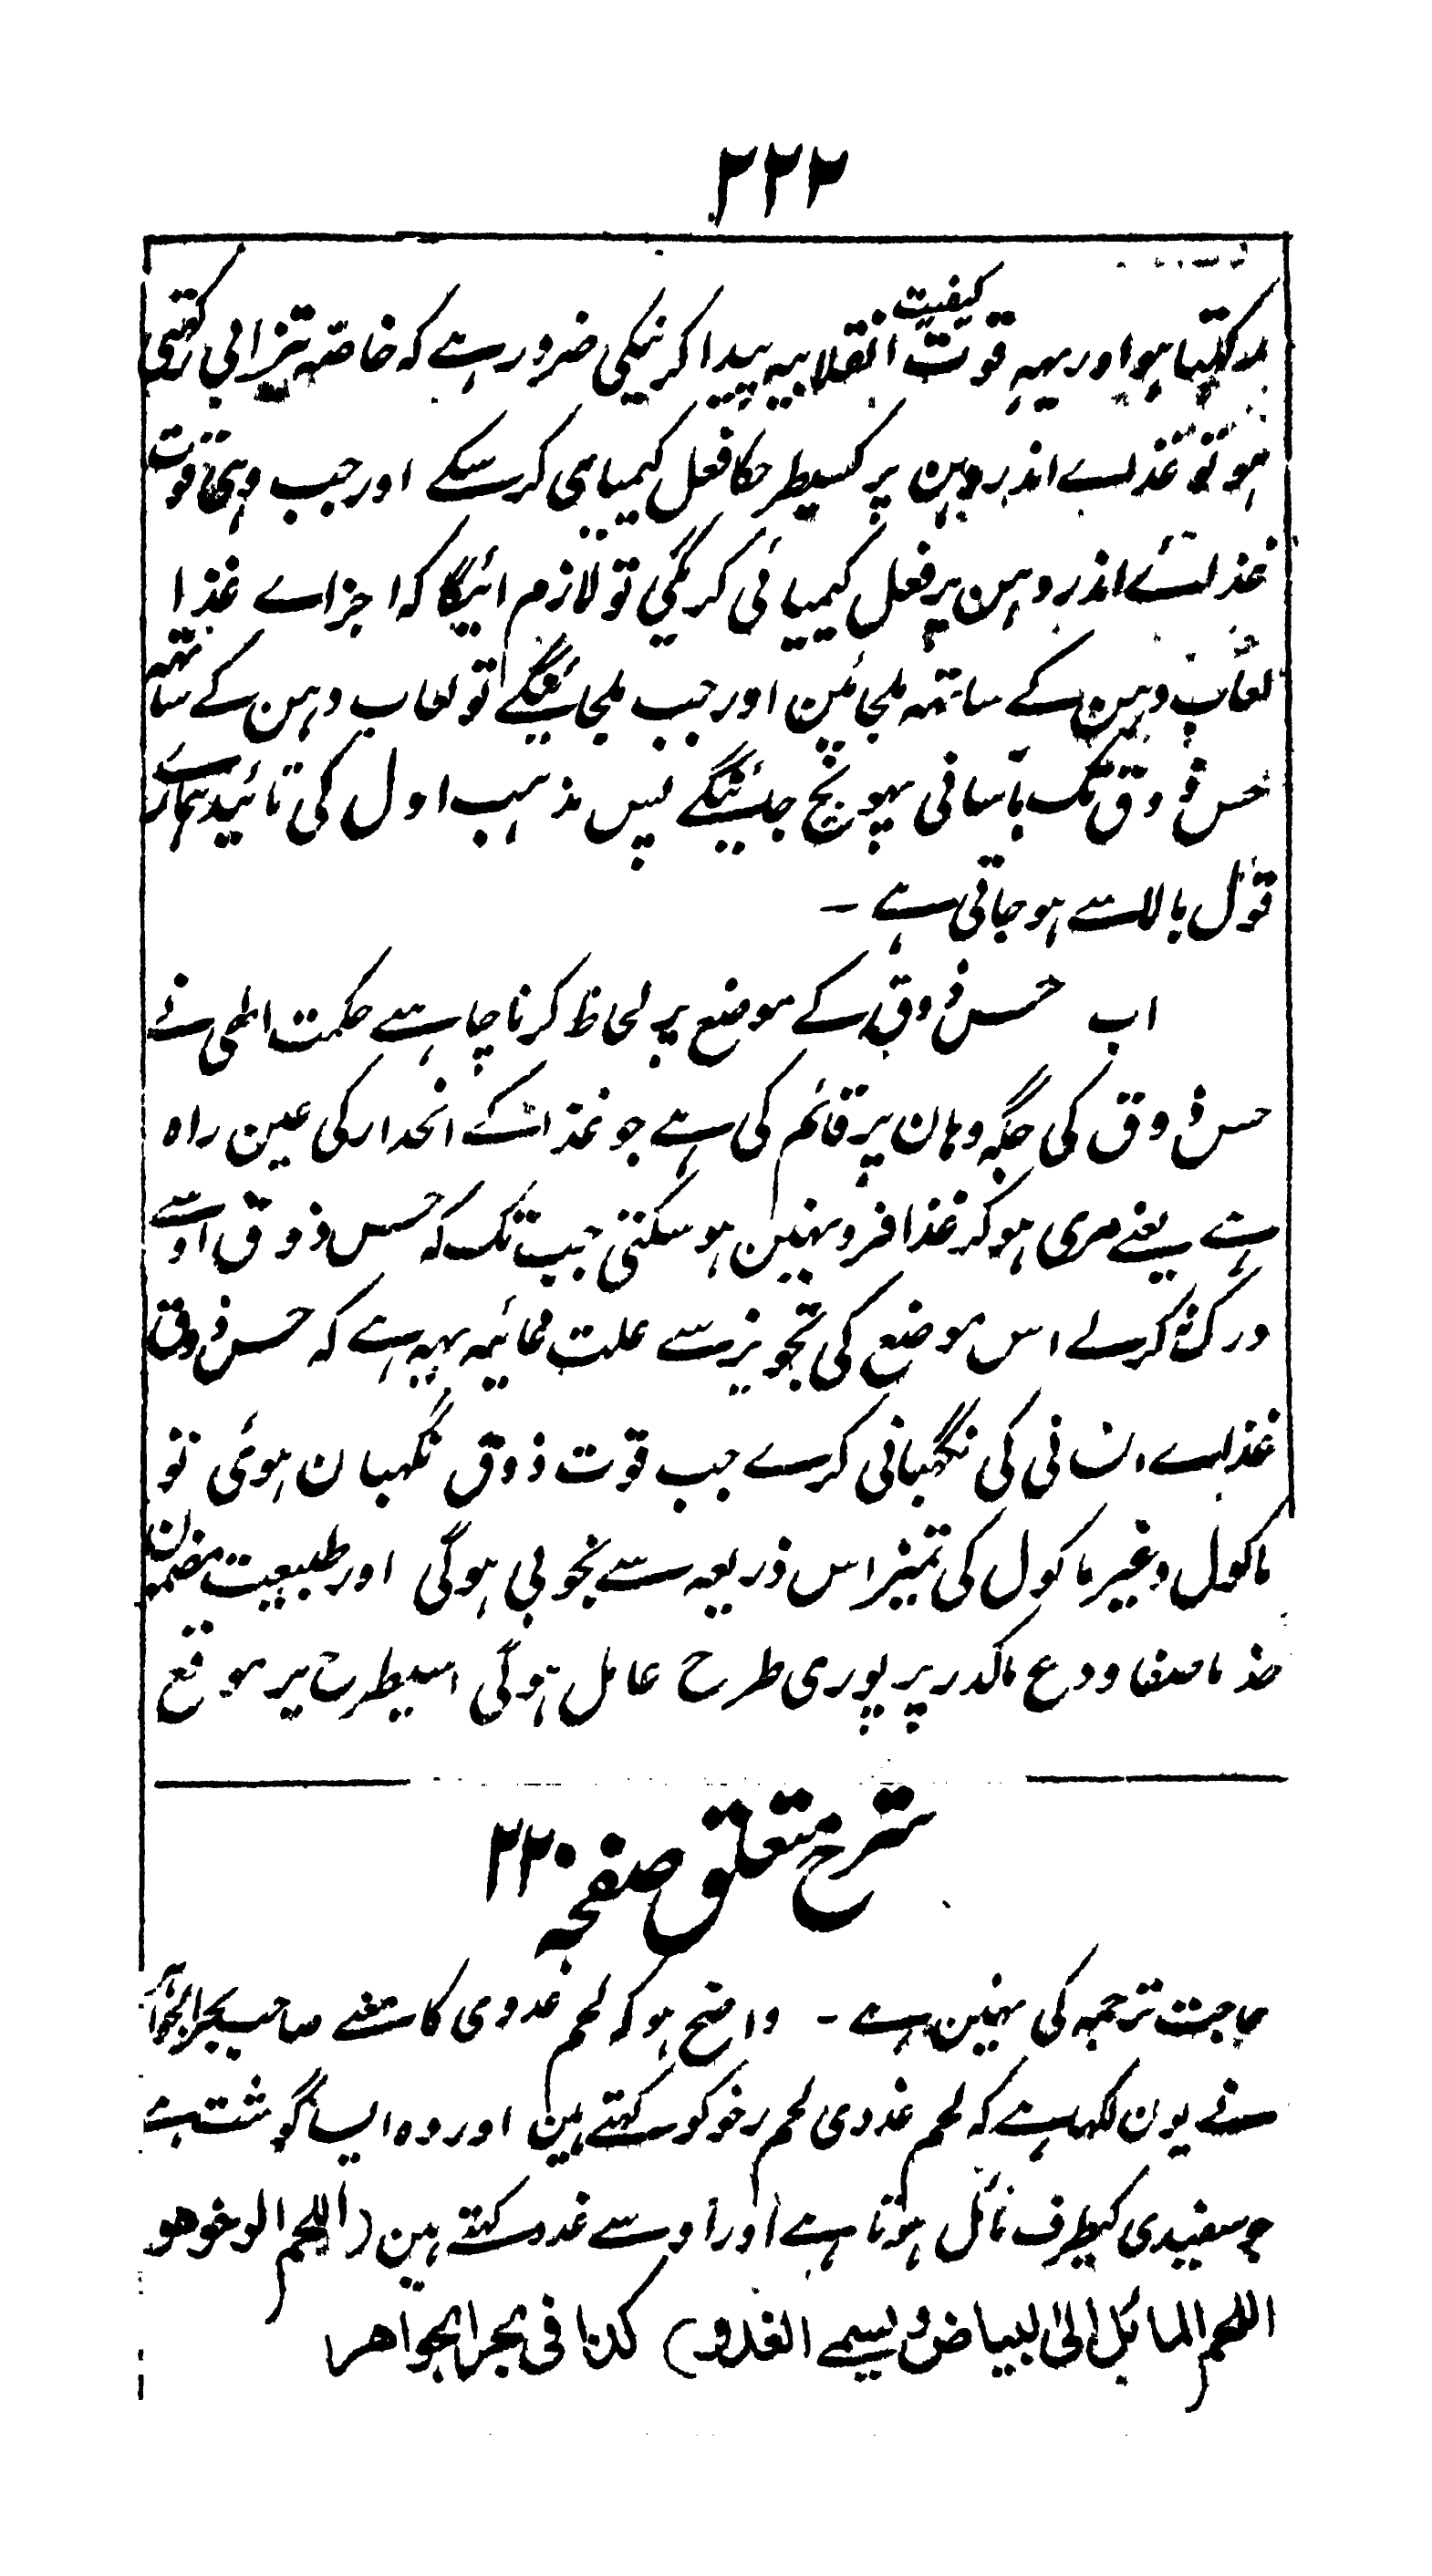 ۲۲۲
ہو اور یہہ قوت کیفیت انقلابیہ پیدا کرنیکی ضرور ہے کہ خاصہ تیزابی رکہتی
ہو تو غذاے اندر دہن پر کسیطرحکا فعل کیمیاہی کر سکے اور جب وہی قوت
غذائے اندر دہن پر فعل کیمیائی کریگی تو لازم ائیگا کہ اجزاے غذا
لعاب دہن کے ساتہہ ملجائین اور جب ملجائینگے تو لعاب دہن کے ساتہہ
حس ذوق تک بآسانی پہونچ جائینگے پس مذہب اول کی تائید ہمارے
قول بالا سے ہو جاتی ہے -
اب حس ذوق کے موضع پر لحاظ کرنا چاہے حکمت الہی نے
حس ذوق کی جگہ وہان پر قائم کی ہے جو غذا کے انحدار کی عین راہ
ہے یعنے مری ہو کر غذا فرو نہین ہو سکتی جب تک کہ حس ذوق اوسے
درک نہ کر لے اس موضع کی تجویز سے علت غائیہ یہہ ہے کہ حس ذوق
غذاے انسانی کی نگہبانی کرے جب قوت ذوق نگہبان ہوئی تو
ماکول و غیر ماکول کی تمیز اس ذریعہ سے بخوبی ہوگی اور طبیعت مضمون
خذ ما صفا و دع ماکدر پر پوری طرح عامل ہوگی اسیطرح پر موقع
شرح متعلق صفحہ ۲۲۰
حاجت ترجمہ کی نہین ہے - واضح ہو کہ لحم غددی کا معنے صاحب بحر الجواہر
نے یون لکہا ہے کہ لحم غددی لحم رخو کو کہتے ہین اور وہ ایسا گوشت ہے
جو سفیدی کیطرف مائل ہوتا ہے اور اوسے غدد کہتے ہین (اللحم الرخو هو
اللحم المائل الى البياض ويسمے الغدد) كذا فى بحر الجواهر